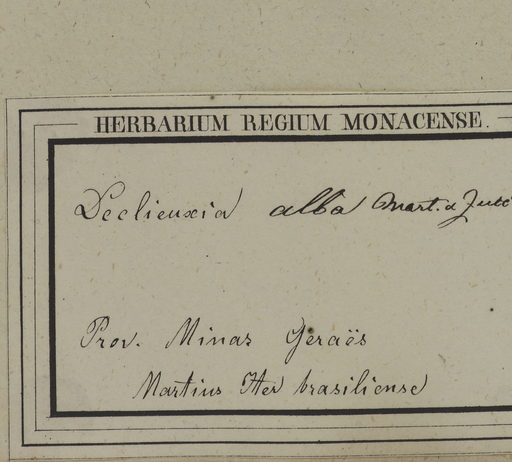 HERBARIUM REGIUM MONACENSE.
Declieuxia alba Mart. & Zucc
Prov. Minas Geraës
Martius Iter brasiliense